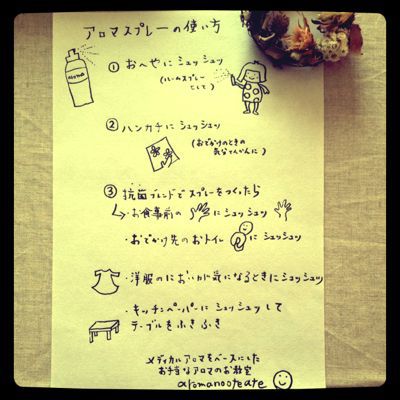 アロマスプレーの使い方
aroma
① おへやにシュッシュッ
(ルームスプレー
として)
② ハンカチにシュッシュッ
(おでかけのときの
気分てんかんに)
③ 抗菌ブレンドでスプレーをつくったら
・お食事前の にシュッシュッ
・おでかけ先のおトイレ にシュッシュッ
・洋服のにおいが気になるときにシュッシュッ
・キッチンペーパーにシュッシュッして
テーブルをふきふき
メディカルアロマをベースにした
お手当なアロマのお教室